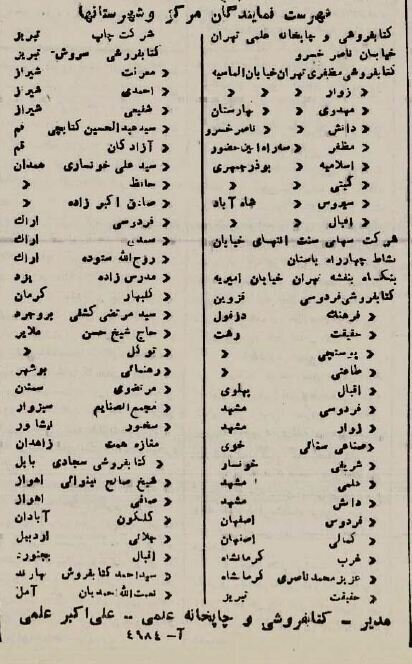 فهرست نمایندگان مرکز وشهرستانها
کتابفروشی و چاپخانه علمی تهران
خیابان ناصر خسرو
کتابفروشی مظفری تهران خیابان الماسیه
« زوار « « «
« مهدوی « « بهارستان
« دانش « « ناصر خسرو
« مظفر « سه‌راه امین حضور
« اسلامیه « بوذرجمهری
« گیتی « «
« سیروس « شاه آباد
« اقبال « «
شرکت سهامی سنت انتهای خیابان
نشاط چهارراه باستان
بنگاه بنفشه تهران خیابان امیریه
کتابفروشی فردوسی قزوین
« فرهنگ دزفول
« حقیقت رشت
« پوستچی «
« طاعتی «
« اقبال پهلوی
« فردوسی مشهد
« زوار مشهد
« صناعی سنائی خوی
« شریفی خونسار
« علمی مشهد
« دانش مشهد
« فردوس اصفهان
« کمالی اصفهان
« غرب کرمانشاه
« عزیز محمد ناصری کرمانشاه
« حقیقت تبریز
شرکت چاپ تبریز
کتابفروشی سروش - تبریز
« معرفت شیراز
« احمدی شیراز
« شفیعی شیراز
« سید عبدالحسین کتابچی قم
« آزادگان قم
« سید علی خونساری همدان
« حافظ «
« صادق اکبر زاده «
« فردوسی اراک
« سعدی اراک
« روح الله ستوده اراک
« مدرس زاده یزد
« گلبهار کرمان
« سید مرتضی کشفی بروجرد
« حاج شیخ حسن ملایر
« توکل «
« رهنمائی بوشهر
« مرتضوی سمنان
« مجمع الصنایع سبزوار
« سخنور نیشابور
مغازه همت زاهدان
« کتابفروشی سجادی بابل
« شیخ صالح اهواز
« صافی اهواز
« گلگون آبادان
« جلالی اردبیل
« اقبال بجنورد
« سید احمد کتابفروش نهاوند
« نعمت الله احمدیان آمل
مدیر - کتابفروشی و چاپخانه علمی - علی اکبر علمی
آ- ۴۹۸۴